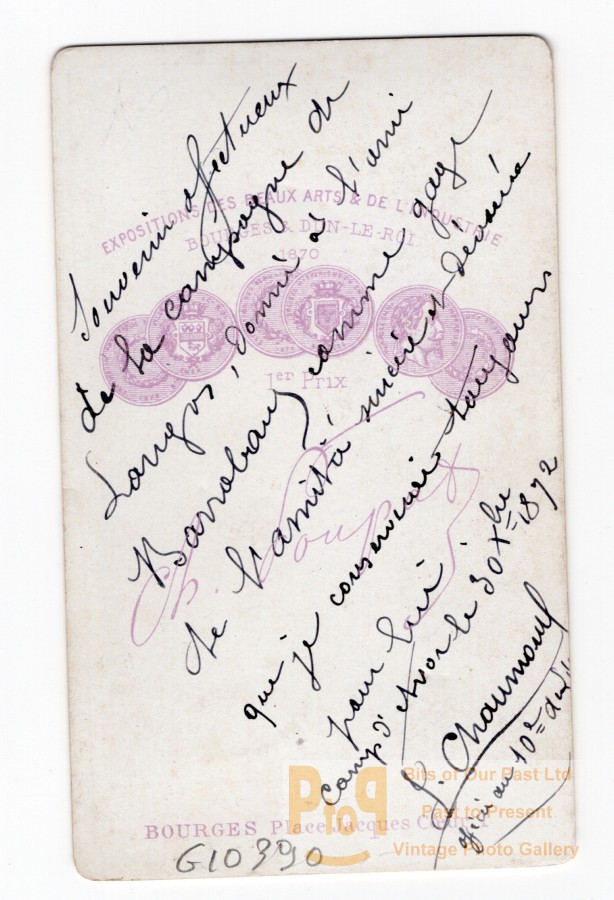 Souvenir affectueux
de la campagne de
Langres, donné à l'ami
Barrabaud comme gage
de l'amitié sincère et dévouée
que je conserverai toujours
pour lui
Camp d'Avor le 30 Xbre 1872
J. Chaumont
au 10me
EXPOSITIONS DES BEAUX ARTS & DE L'INDUSTRIE
BOURGES & DUN-LE-ROI
1870
1er Prix
BOURGES Place Jacques Cœur
G10390
PtoP
Bits of Our Past Ltd
Past to Present
Vintage Photo Gallery